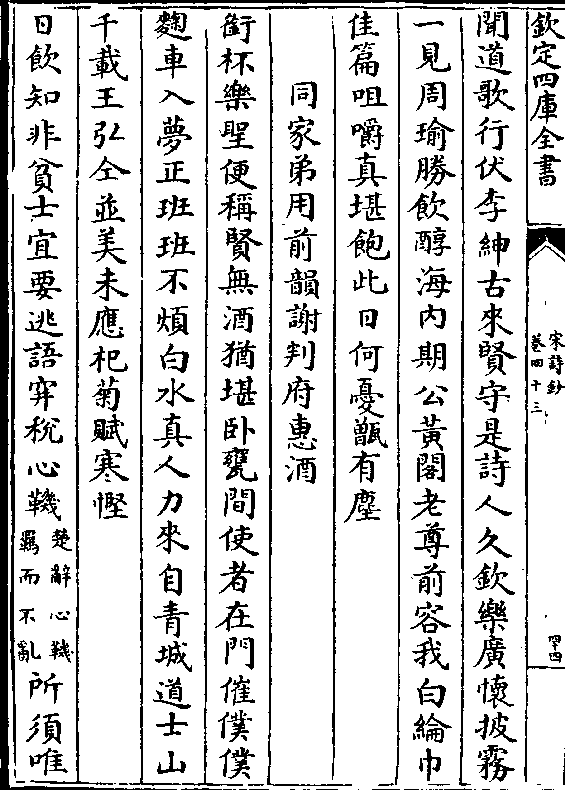 欽定四庫全書
宋詩鈔
卷四十三
四十四
聞道歌行伏李紳古來賢守是詩人久欽樂廣懷披霧
一見周瑜勝飲醇海内期公黃閣老尊前容我白綸巾
佳篇咀嚼真堪飽此日何憂甑有塵
同家弟用前韻謝判府惠酒
銜杯樂聖便稱賢無酒猶堪卧甕間使者在門催僕僕
麴車入夢正班班不煩白水真人力來自青城道士山
千載王弘仝並美未應杞菊賦寒慳
日飲知非貧士宜要逃語穽稅心鞿楚辭心鞿羈而不亂所須唯